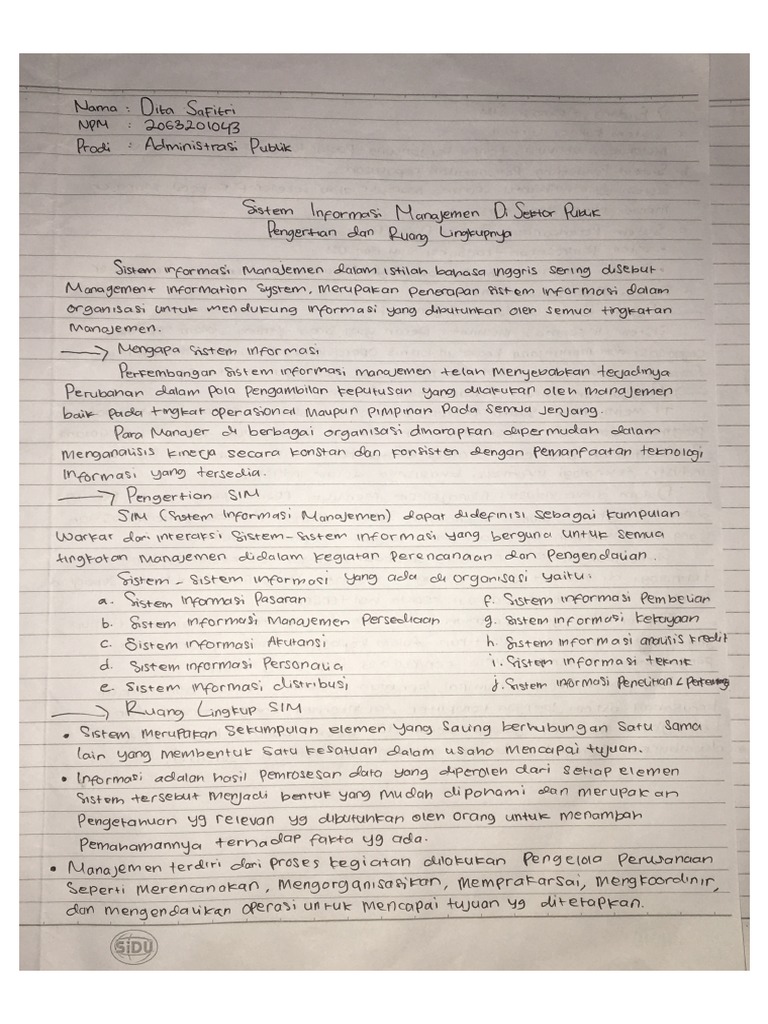 Nama : Dita Safitri
NPM : 2063201043
Prodi : Administrasi Publik
Sistem Informasi Manajemen Di Sektor Publik
Pengertian dan Ruang Lingkupnya
Sistem informasi Manajemen dalam istilah bahasa inggris sering disebut
Management Information System, Merupakan Penerapan sistem informasi dalam
organisasi untuk mendukung informasi yang dibutuhkan oleh semua tingkatan
Manajemen.
→ Mengapa Sistem Informasi
Perkembangan Sistem informasi manajemen telah Menyebabkan terjadinya
Perubahan dalam Pola Pengambilan keputusan yang dilakukan oleh manajemen
baik pada tingkat operasional Maupun pimpinan Pada semua jenjang.
Para Manajer di berbagai organisasi diharapkan dipermudah dalam
Menganalisis kinerja secara konstan dan konsisten dengan Pemanfaatan teknologi
Informasi yang tersedia.
→ Pengertian SIM
SIM (Sistem Informasi Manajemen) dapat didefinisi sebagai kumpulan
dari interaksi Sistem-sistem informasi yang berguna untuk semua
tingkatan Manajemen didalam kegiatan Perencanaan dan Pengendalian.
Sistem - Sistem informasi yang ada di organisasi yaitu:
a. Sistem Informasi Pasaran
b. Sistem Informasi Manajemen Persediaan
c. Sistem Informasi Akutansi
d. Sistem Informasi Personalia
e. Sistem informasi distribusi
f. Sistem informasi Pembelian
g. Sistem informasi kekayaan
h. Sistem informasi analisis kredit
i. Sistem informasi teknik
j. Sistem informasi Penelitian &
→ Ruang Lingkup SIM
• Sistem Merupakan Sekumpulan elemen yang Saling berhubungan Satu Sama
lain yang membentuk Satu kesatuan dalam usaha Mencapai tujuan.
• Informasi adalah hasil Pemrosesan data yang diperoleh dari setiap elemen
Sistem tersebut Menjadi bentuk yang mudah dipahami dan merupakan
Pengetahuan yg relevan yg dibutuhkan oleh orang untuk menambah
Pemahamannya terhadap fakta yg ada.
• Manajemen terdiri dari proses kegiatan dilakukan Pengelola Perusahaan
Seperti Merencanakan, Mengorganisasikan, Memprakarsai, Mengkoordinir,
dan mengendalikan operasi untuk Mencapai tujuan yg ditetapkan.
SiDU